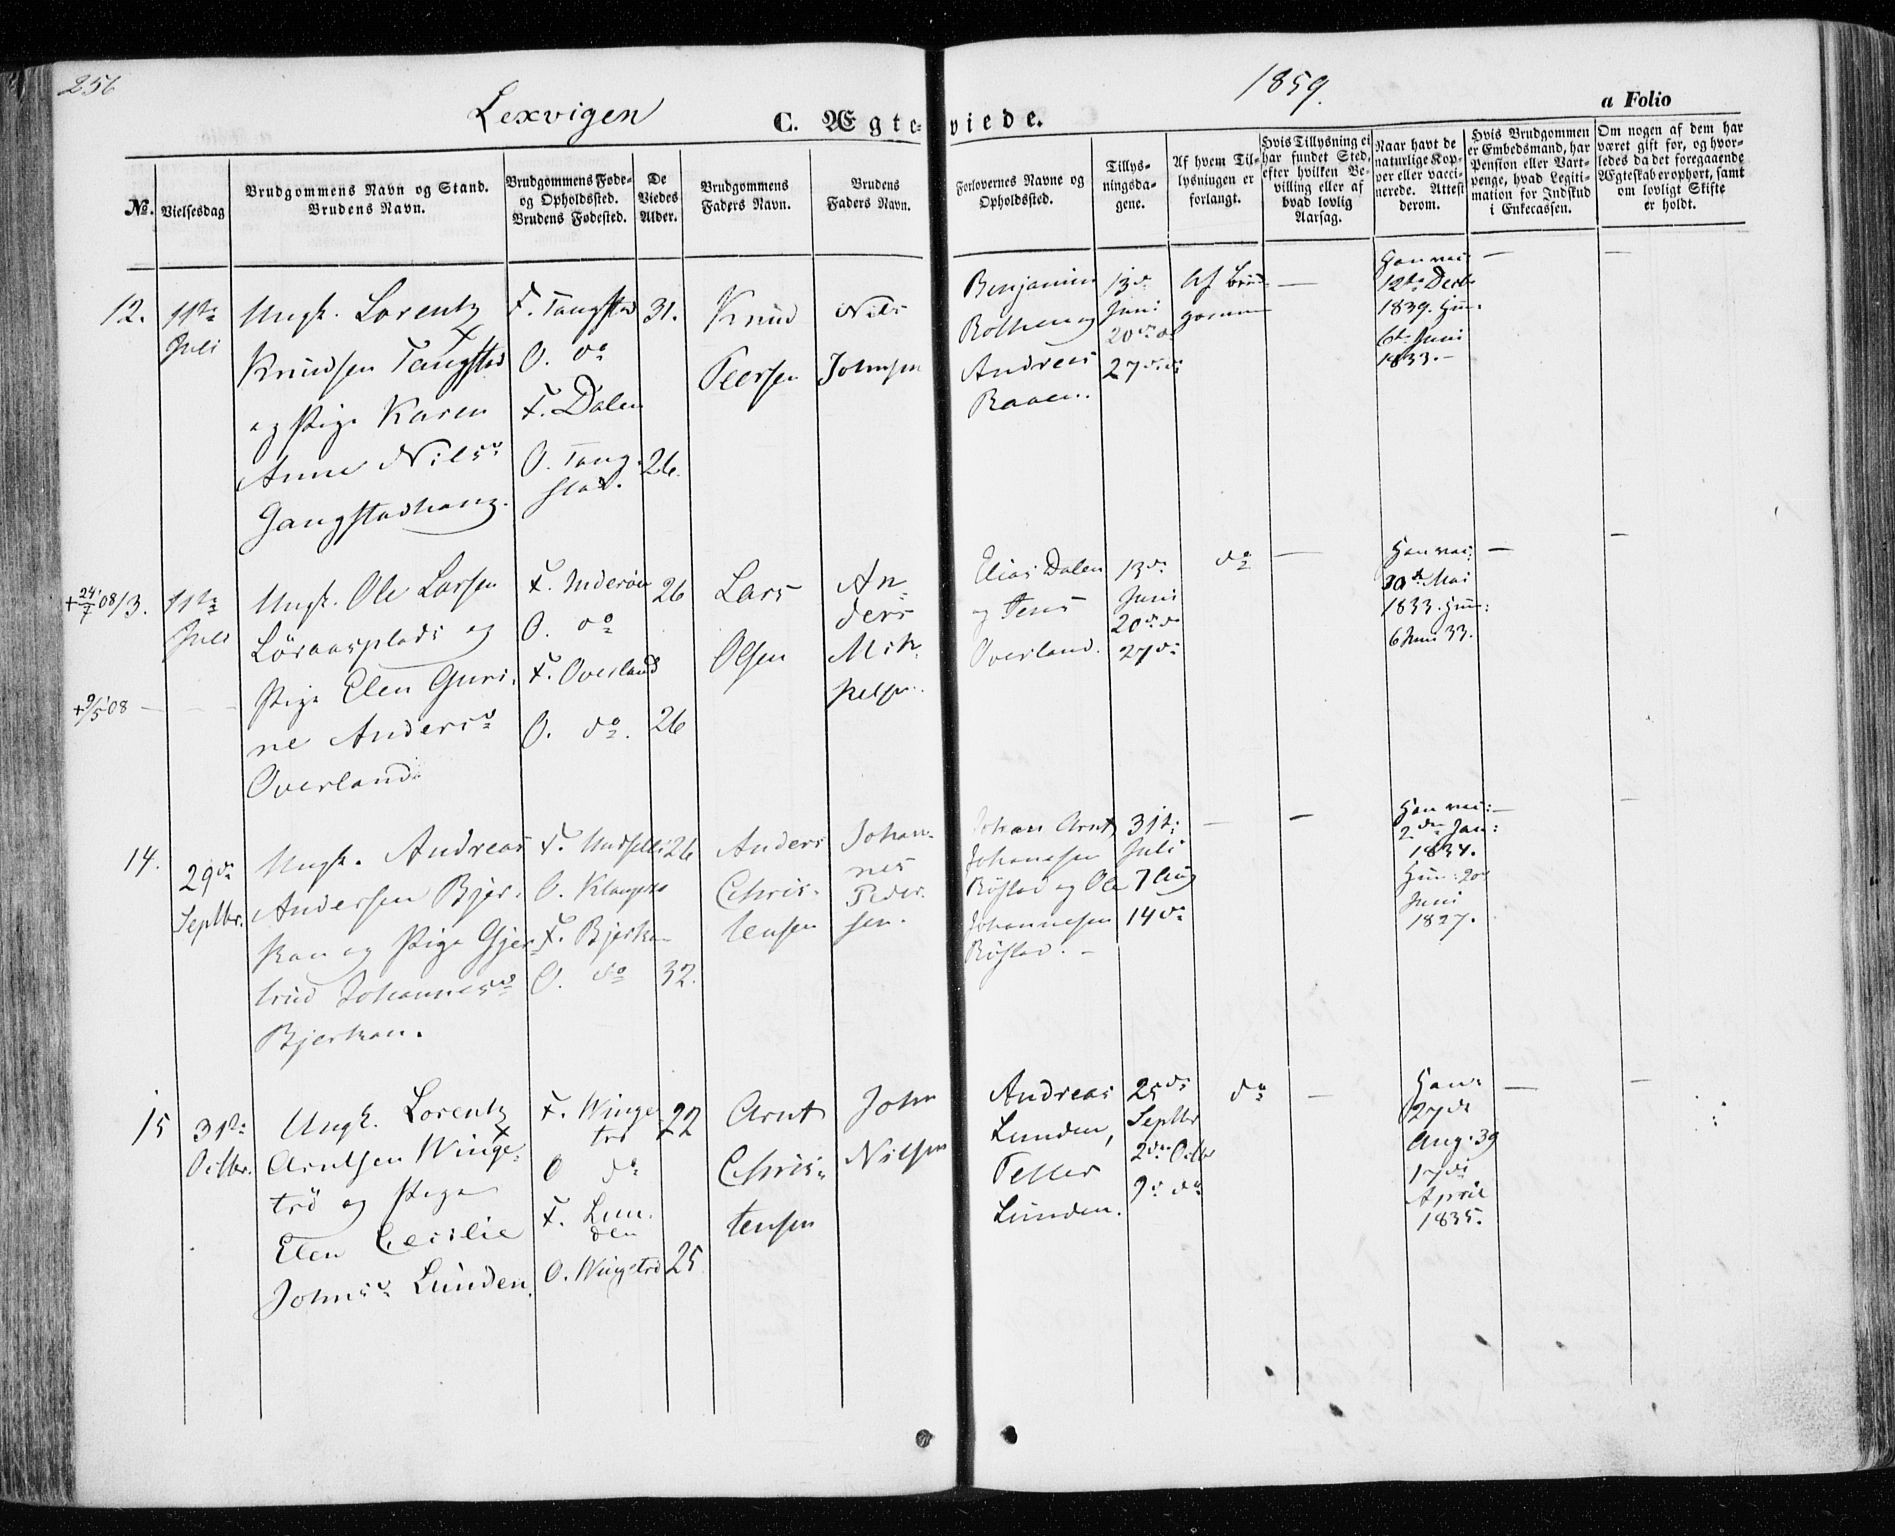 256
Lexvigen
1859.
C. Ægte-viede.
a Folio
No.
Vielsesdag
Brudgommens Navn og Stand.
Brudens Navn.
Brudgommens Føde-
og Opholdssted.
Brudens Fødested.
De
Viedes
Alder.
Brudgommens
Faders Navn.
Brudens
Faders Navn.
Forlovernes Navne og
Opholdssted.
Tillys-
ningsda-
gene.
Af hvem Til-
lysningen er
forlangt.
Hvis Tillysning ei
har fundet Sted,
efter hvilken Be-
villing eller af
hvad lovlig
Aarsag.
Naar havt de
naturlige Kop-
per eller vacci-
nerede. Attest
derom.
Hvis Brudgommen
er Embedsmand, har
Pension eller Vart-
penge, hvad Legiti-
mation for Indskud
i Enkecassen.
Om nogen af dem har
været gift før, og hvor-
ledes da det foregaaende
Ægteskab er ophørt, samt
om lovligt Skifte
er holdt.
12.
11te
Juli
Ungk. Lorentz
Knudsen Tangstad
og Pige Karen
Anne Nilsd
Gangstadhaug.
F. Tangstad
O. do
F. Dalen
O. Tang-
stad.
31.
26.
Knud
Peersen
Nils
Johnsen
Benjamin
Rothen og
Andreas
Raaen.
13de
Juni
20de do
27de do
Af Brud-
gommen
—
Han vac:
12te Decbr
1839. Hun:
6te Juni
1833.
—
—
+24/7 08
13.
11te
Juli
Ungk. Ole Larsen
Løraasplads og
Pige Elen Guri-
ne Andersd
Overland.
+9/5 08 —
F. Inderøen
O. do
F. Overland
O. do.
26
26
Lars
Olsen
An-
ders
Mik-
kelsen.
Elias Dalen
og Jens
Overland.
13de
Juni
20de do
27de
do
—
Han vac:
30te Mai
1833. Hun:
6 Juni 33.
—
—
14.
29de
Septbr.
Ungk. Andreas
Andersen Bjer-
kan og Pige Gjer-
trud Johannesd
Bjerkan.
O.
F. Bjerkan
O. do
26
32.
Anders
Chris-
tensen
Johan-
nes
Peder-
sen.
Johan Arnt
Johansen
Røstad og Ole
Johannesen
Røstad. —
31te
Juli
7 Aug
14de
—
—
Han vac: —
2den Jan:
1834.
Hun: 20de
Juni
1827.
—
15
31te
Octbr.
Ungk. Lorentz
Arntsen Winge-
trø og Pige
Elen Cecilie
Johnsd Lunden.
F. Winge
trø
O do
F. Lun-
den
O. Wingetrø
22
25
Arnt
Chris-
tensen
John
Nilsen
Andreas
Lunden,
Petter
Lunden.
25de
Septbr
2den Octbr
9de do
do
—
Han:
27de
Aug: 39
17de
April
1835.
—
—